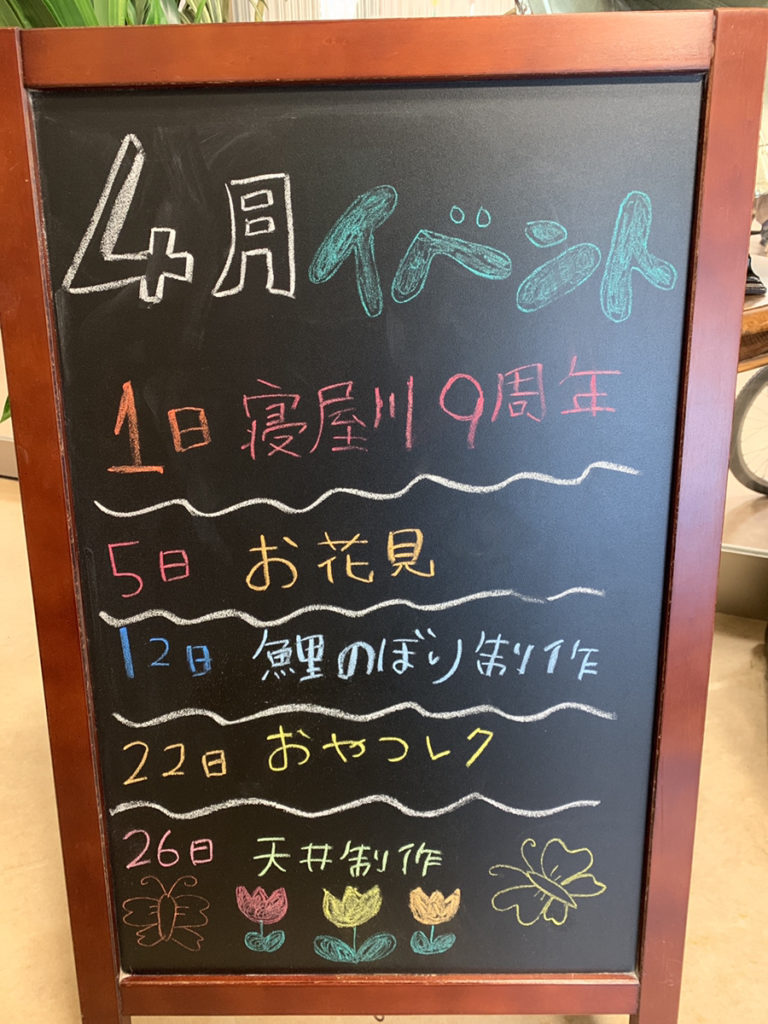 4月イベント
1日 寝屋川9周年
5日 お花見
12日 鯉のぼり制作
22日 おやつレク
26日 天井制作